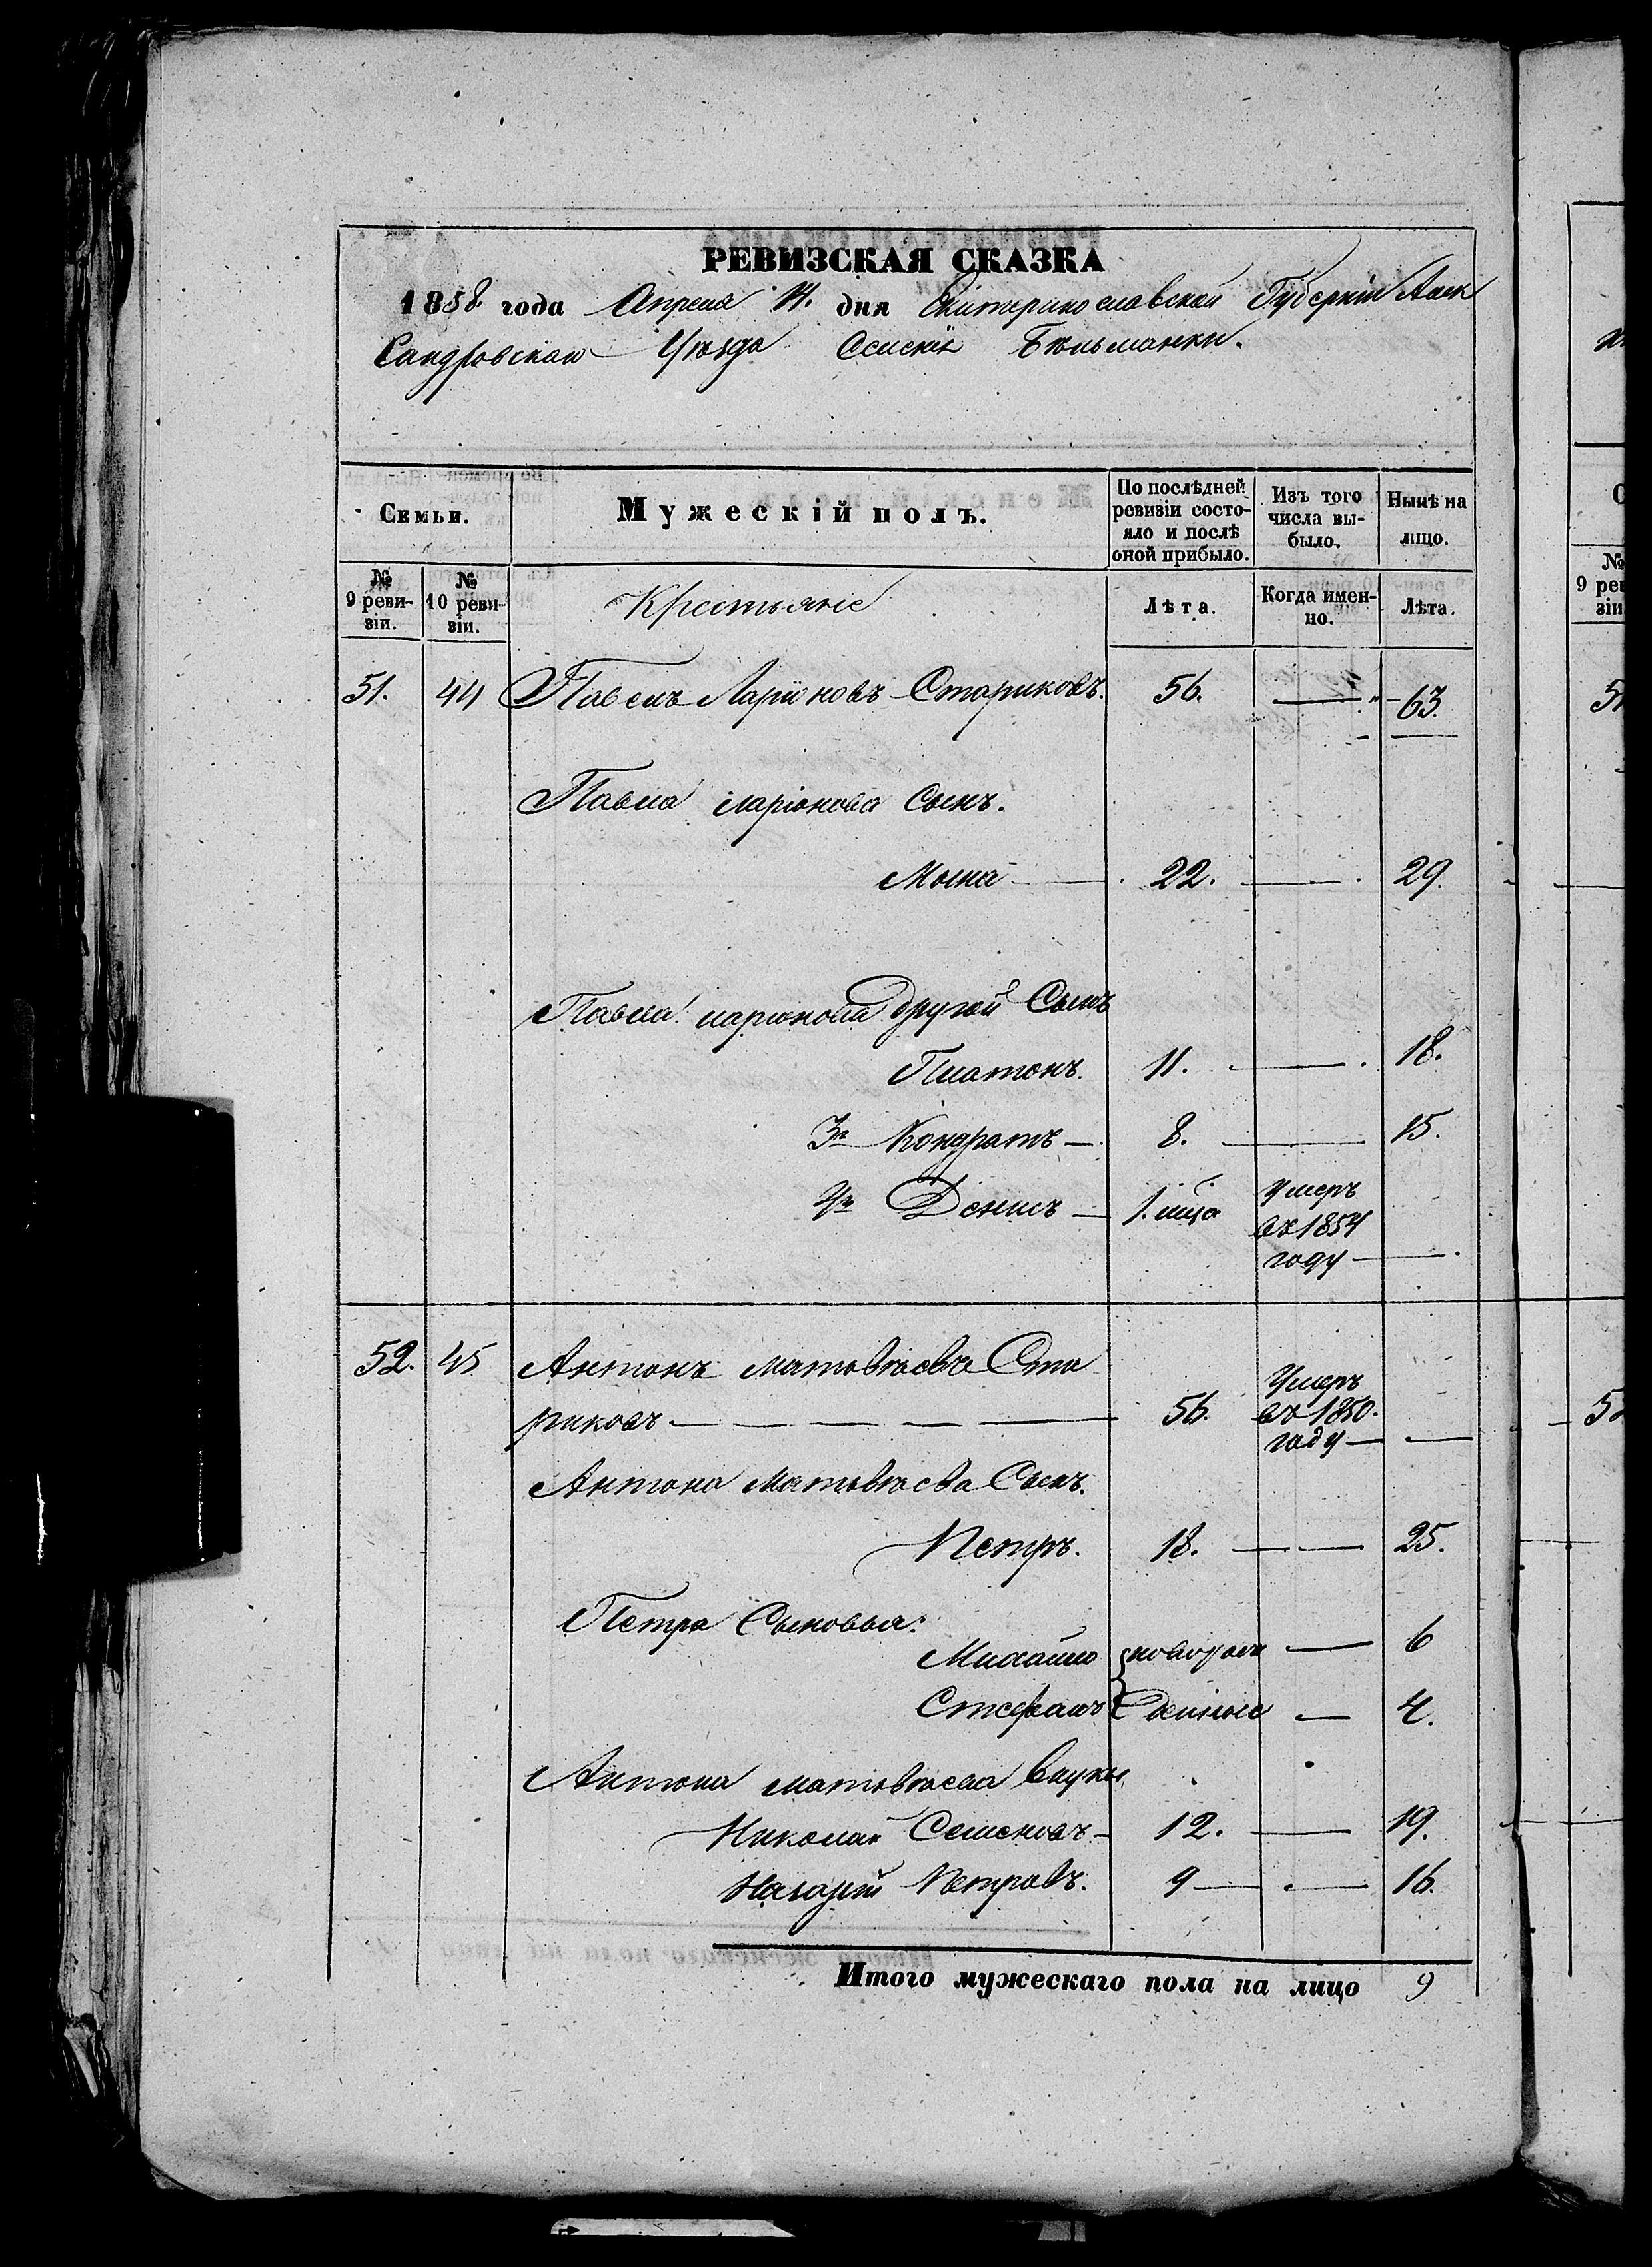 РЕВИЗСКАЯ СКАЗКА
1858. года Апреля 14. дня Екатеринославской Губерніи Алек
сандровскаго Уѣзда Селенія Бѣльманки.
Семьи.
Мужескій полъ.
По послѣдней ревизіи состояло и послѣ оной прибыло.
Изъ того числа выбыло.
Нынѣ на лицо.
№ 9 ревизіи.
№ 10 ревизіи.
Крестьяне
Лѣта.
Когда именно.
Лѣта.
№
9 рев
зіи
51. 44 Павелъ Ларіоновъ Стариковъ. 56. — 63.
Павла Ларіонова Сынъ.
22. — 29.
Павла Ларіонова другой Сынъ
Платонъ. 11. — 18.
3й Кондратъ — 8. — 15.
4й Денисъ — 1. мца Умеръ
въ 1854
году —
52. 45 Антонъ Матвѣевъ Ста
риковъ — 56. Умеръ
въ 1850.
году —
Антона Матвѣева Сынъ.
Петръ. 18. — 25.
Петра Сыновья:
Михайло новорож — 6
Стефанъ денные — 4.
Антона Матвѣева внуки
Николай Семеновъ — 12. — 19.
Назарій Петровъ. 9 — 16.
Итого мужескаго пола на лицо 9